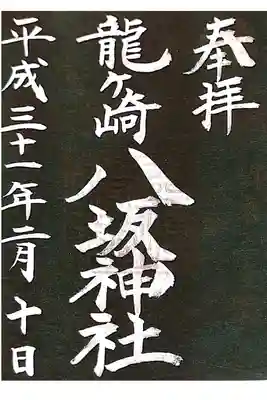 奉拝
龍ヶ崎八坂神社
平成三十一年二月十日